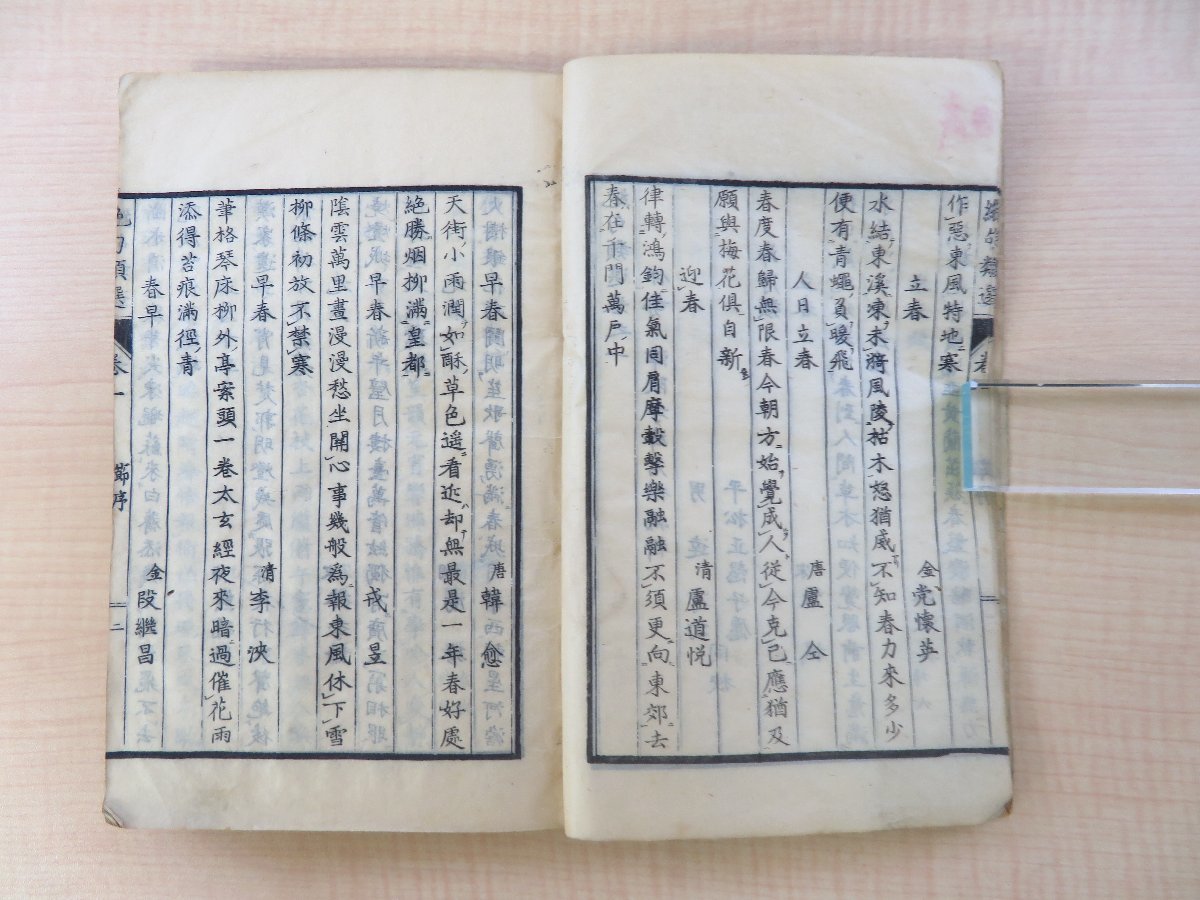 作惡東風特地寒
立春 金 党懷英
水結東溪凍未
風陵枯木怒猶威不知春力來多少
便有青蠅負暖飛
人日立春 唐 盧仝
春度春歸無限春今朝方始覺成人從今克己應猶及
願與梅花俱自新
迎春 清 盧道悅
律轉鴻鈞佳氣同肩摩轂擊樂融融不須更向東郊去
春在千門萬戶中
早春 唐 韓愈
天街小雨潤如酥草色遥看近却無最是一年春好處
絶勝烟柳滿皇都
早春 戎昱
陰雲萬里晝漫漫愁坐開心事幾般爲報東風休下雪
柳條初放不禁寒
早春 清 李泱
筆格琴床柳外亭案頭一卷太玄經夜來暗過催花雨
添得苔痕滿徑青
春早 金 段繼昌
絶句類選 卷一 節序 二